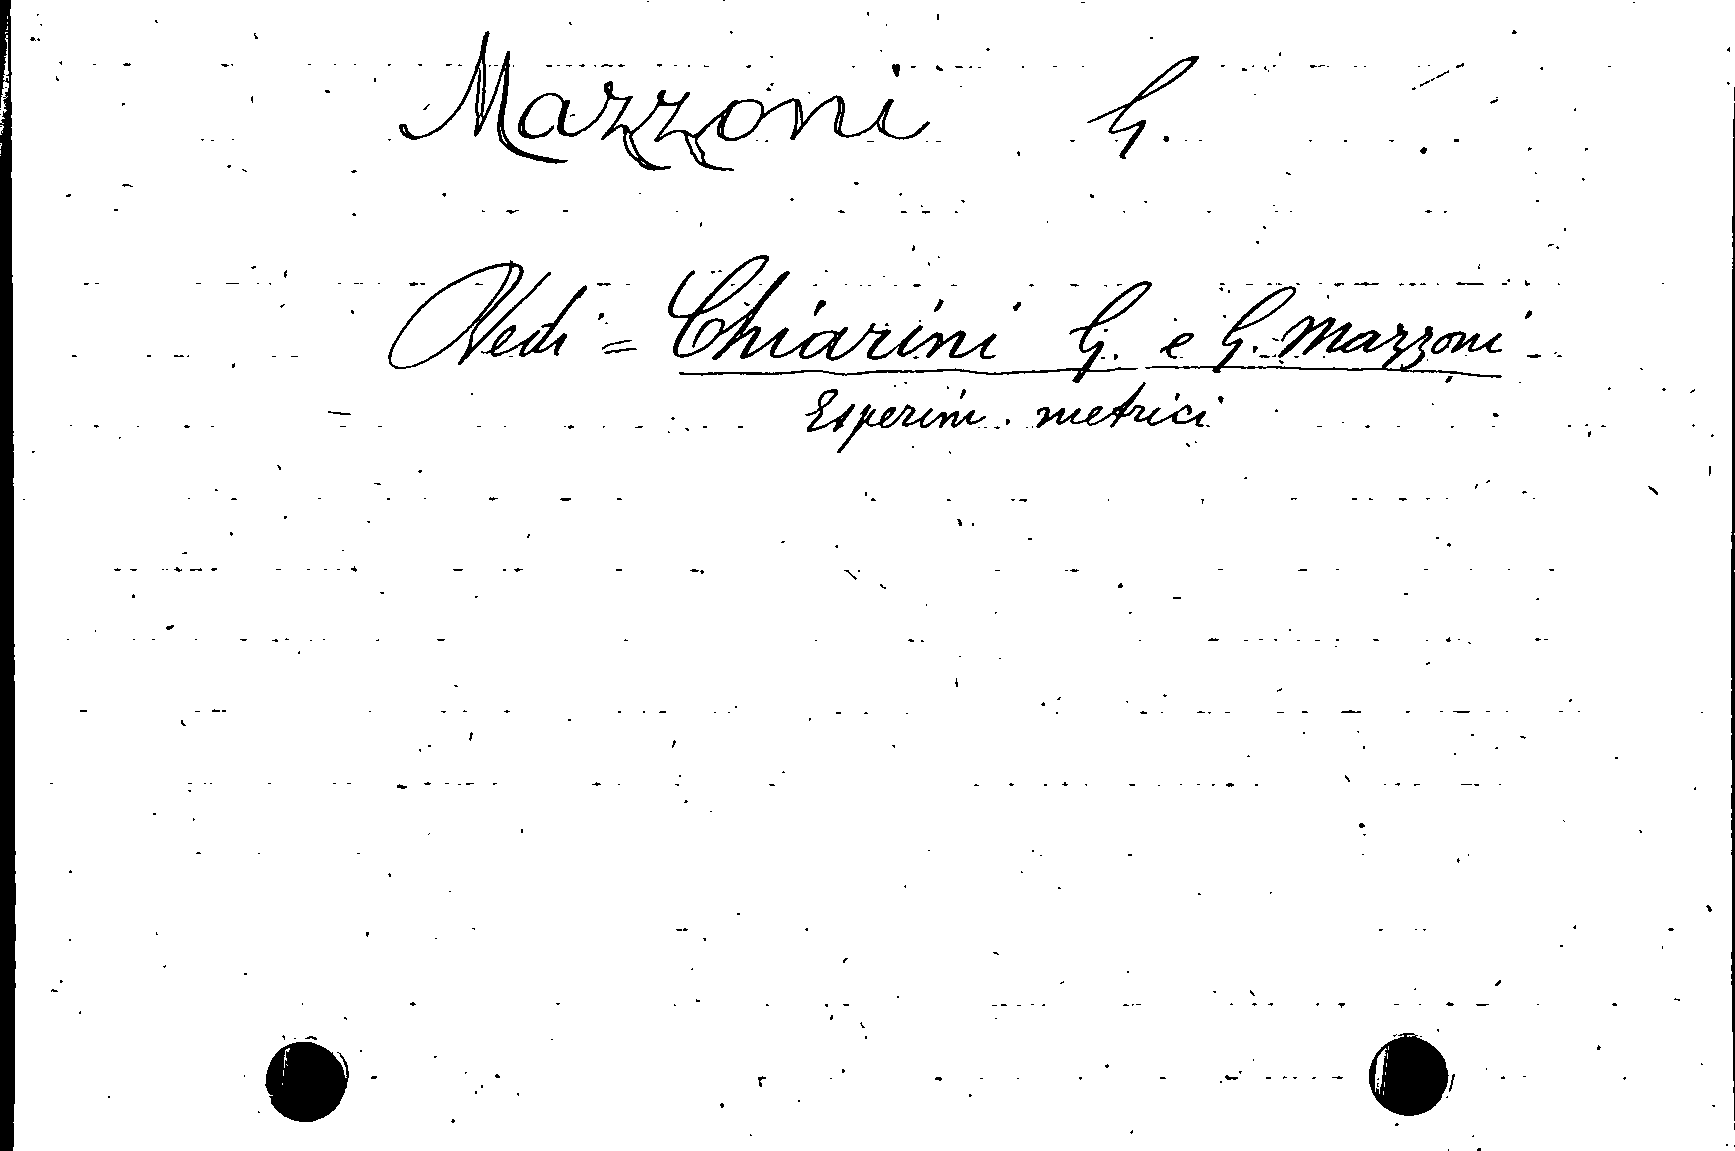 Mazzoni G.
Vedi = Chiarini G. e G. Mazzoni
Esperim. metrici